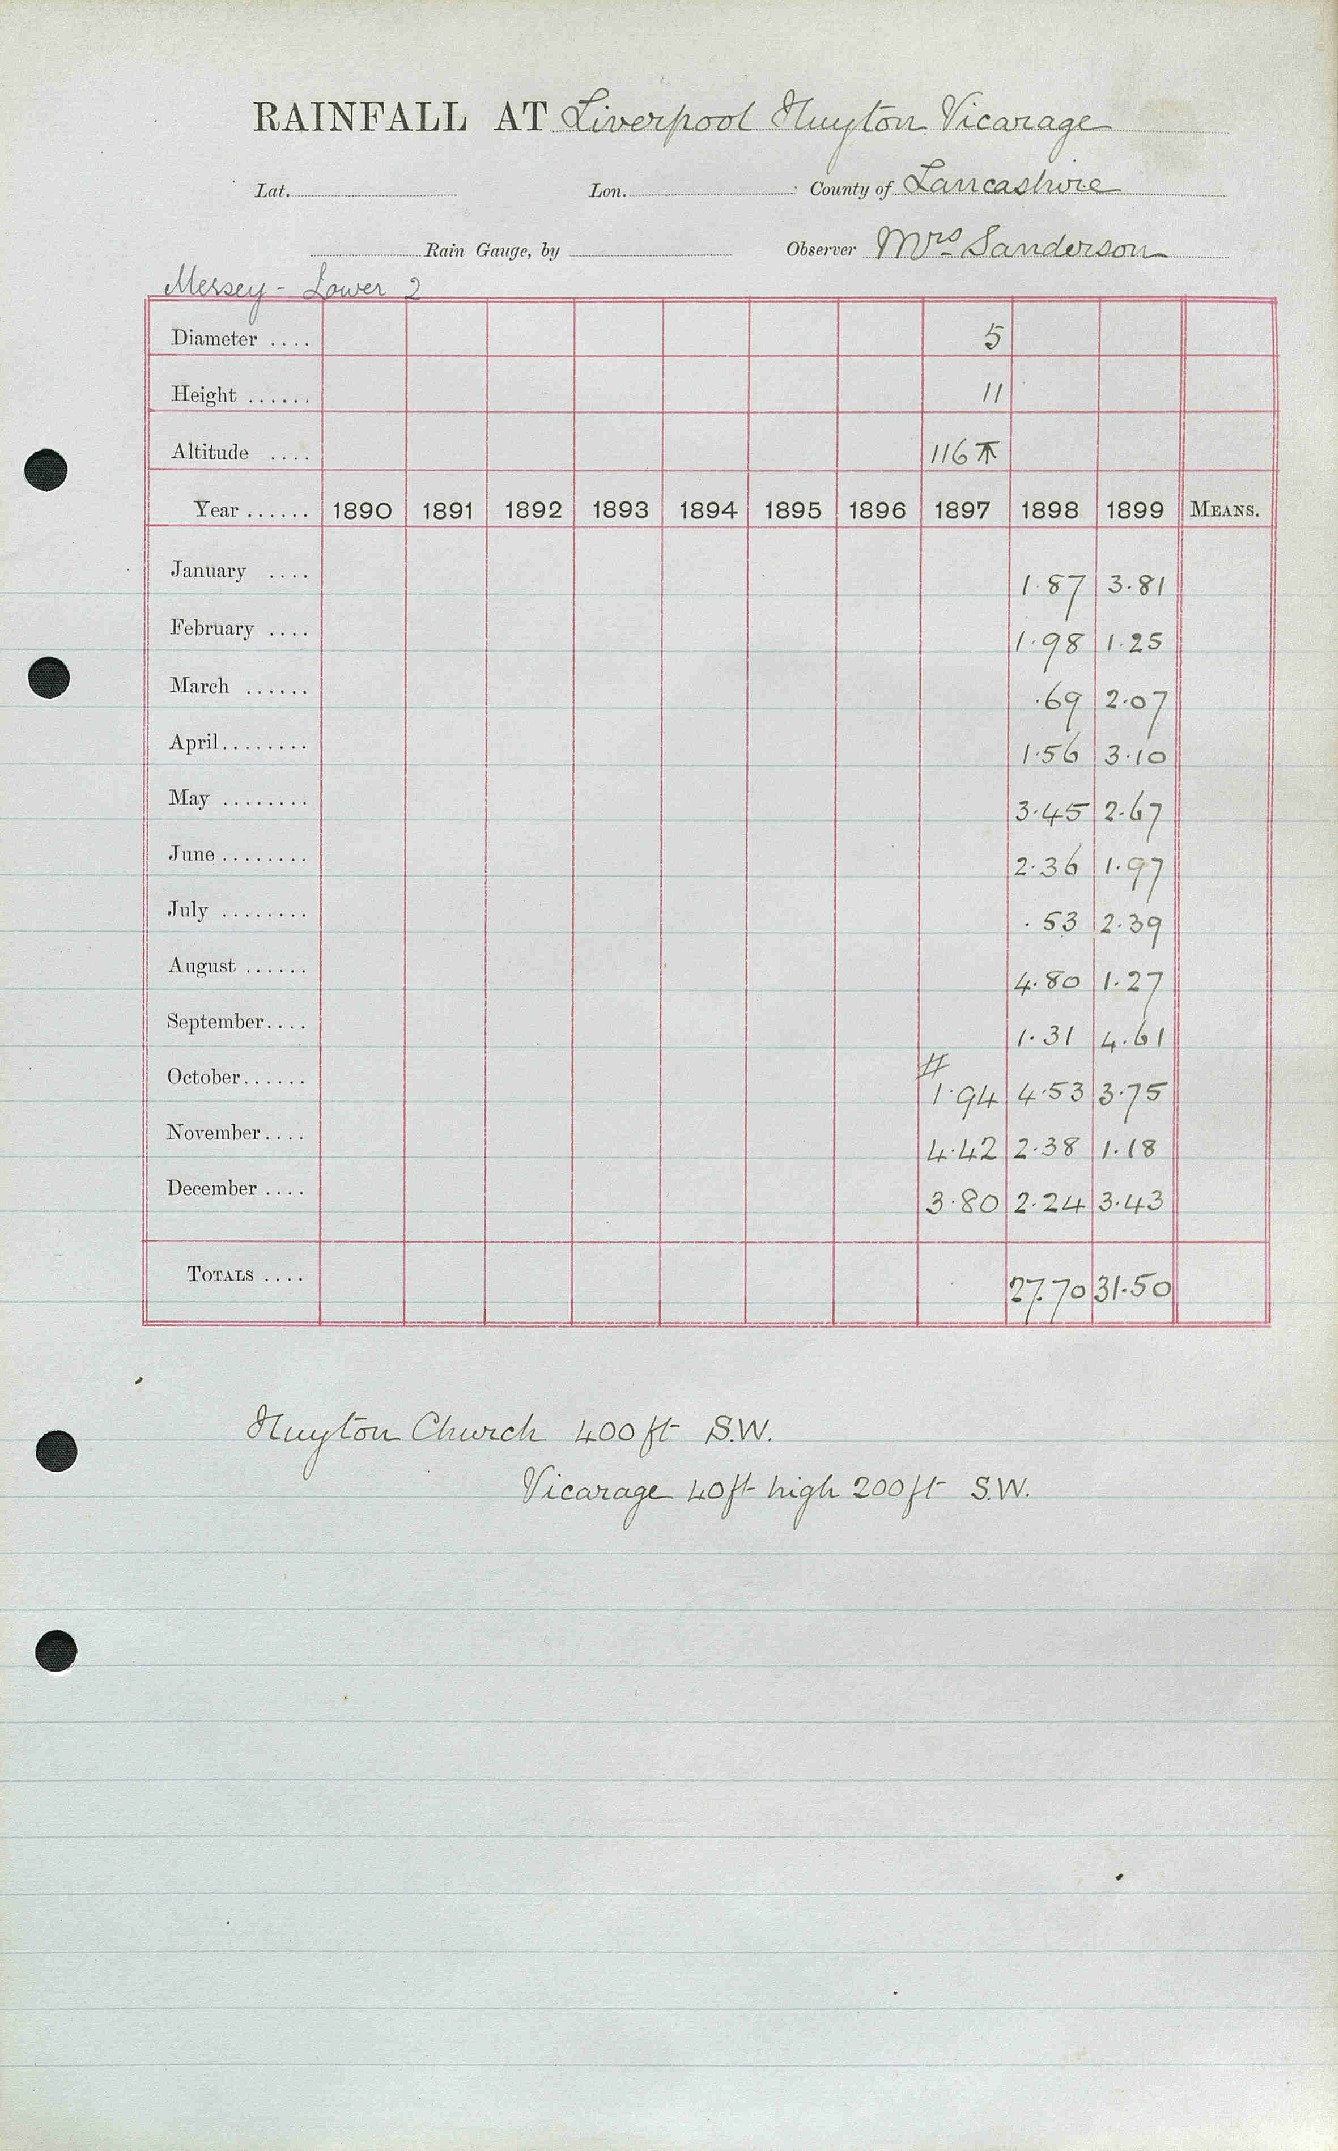 RAINFALL AT Liverpool Huyton Vicarage
Lat. Lon. County of Lancashire
Rain Gauge, by Observer Mrs Sanderson
Mersey - Lower 2
Diameter .... 5
Height ...... 11
Altitude .... 116
Year ...... 1890 1891 1892 1893 1894 1895 1896 1897 1898 1899 MEANS.
January .... 1.87 3.81
February .... 1.98 1.25
March ...... .69 2.07
April........ 1.56 3.10
May ........ 3.45 2.67
June ........ 2.36 1.97
July ........ .53 2.39
August ...... 4.80 1.27
September.... 1.31 4.61
October...... # 1.94 4.53 3.75
November.... 4.42 2.38 1.18
December .... 3.80 2.24 3.43
TOTALS .... 27.70 31.50
Huyton Church 400 ft S.W.
Vicarage 40ft high 200 ft S.W.